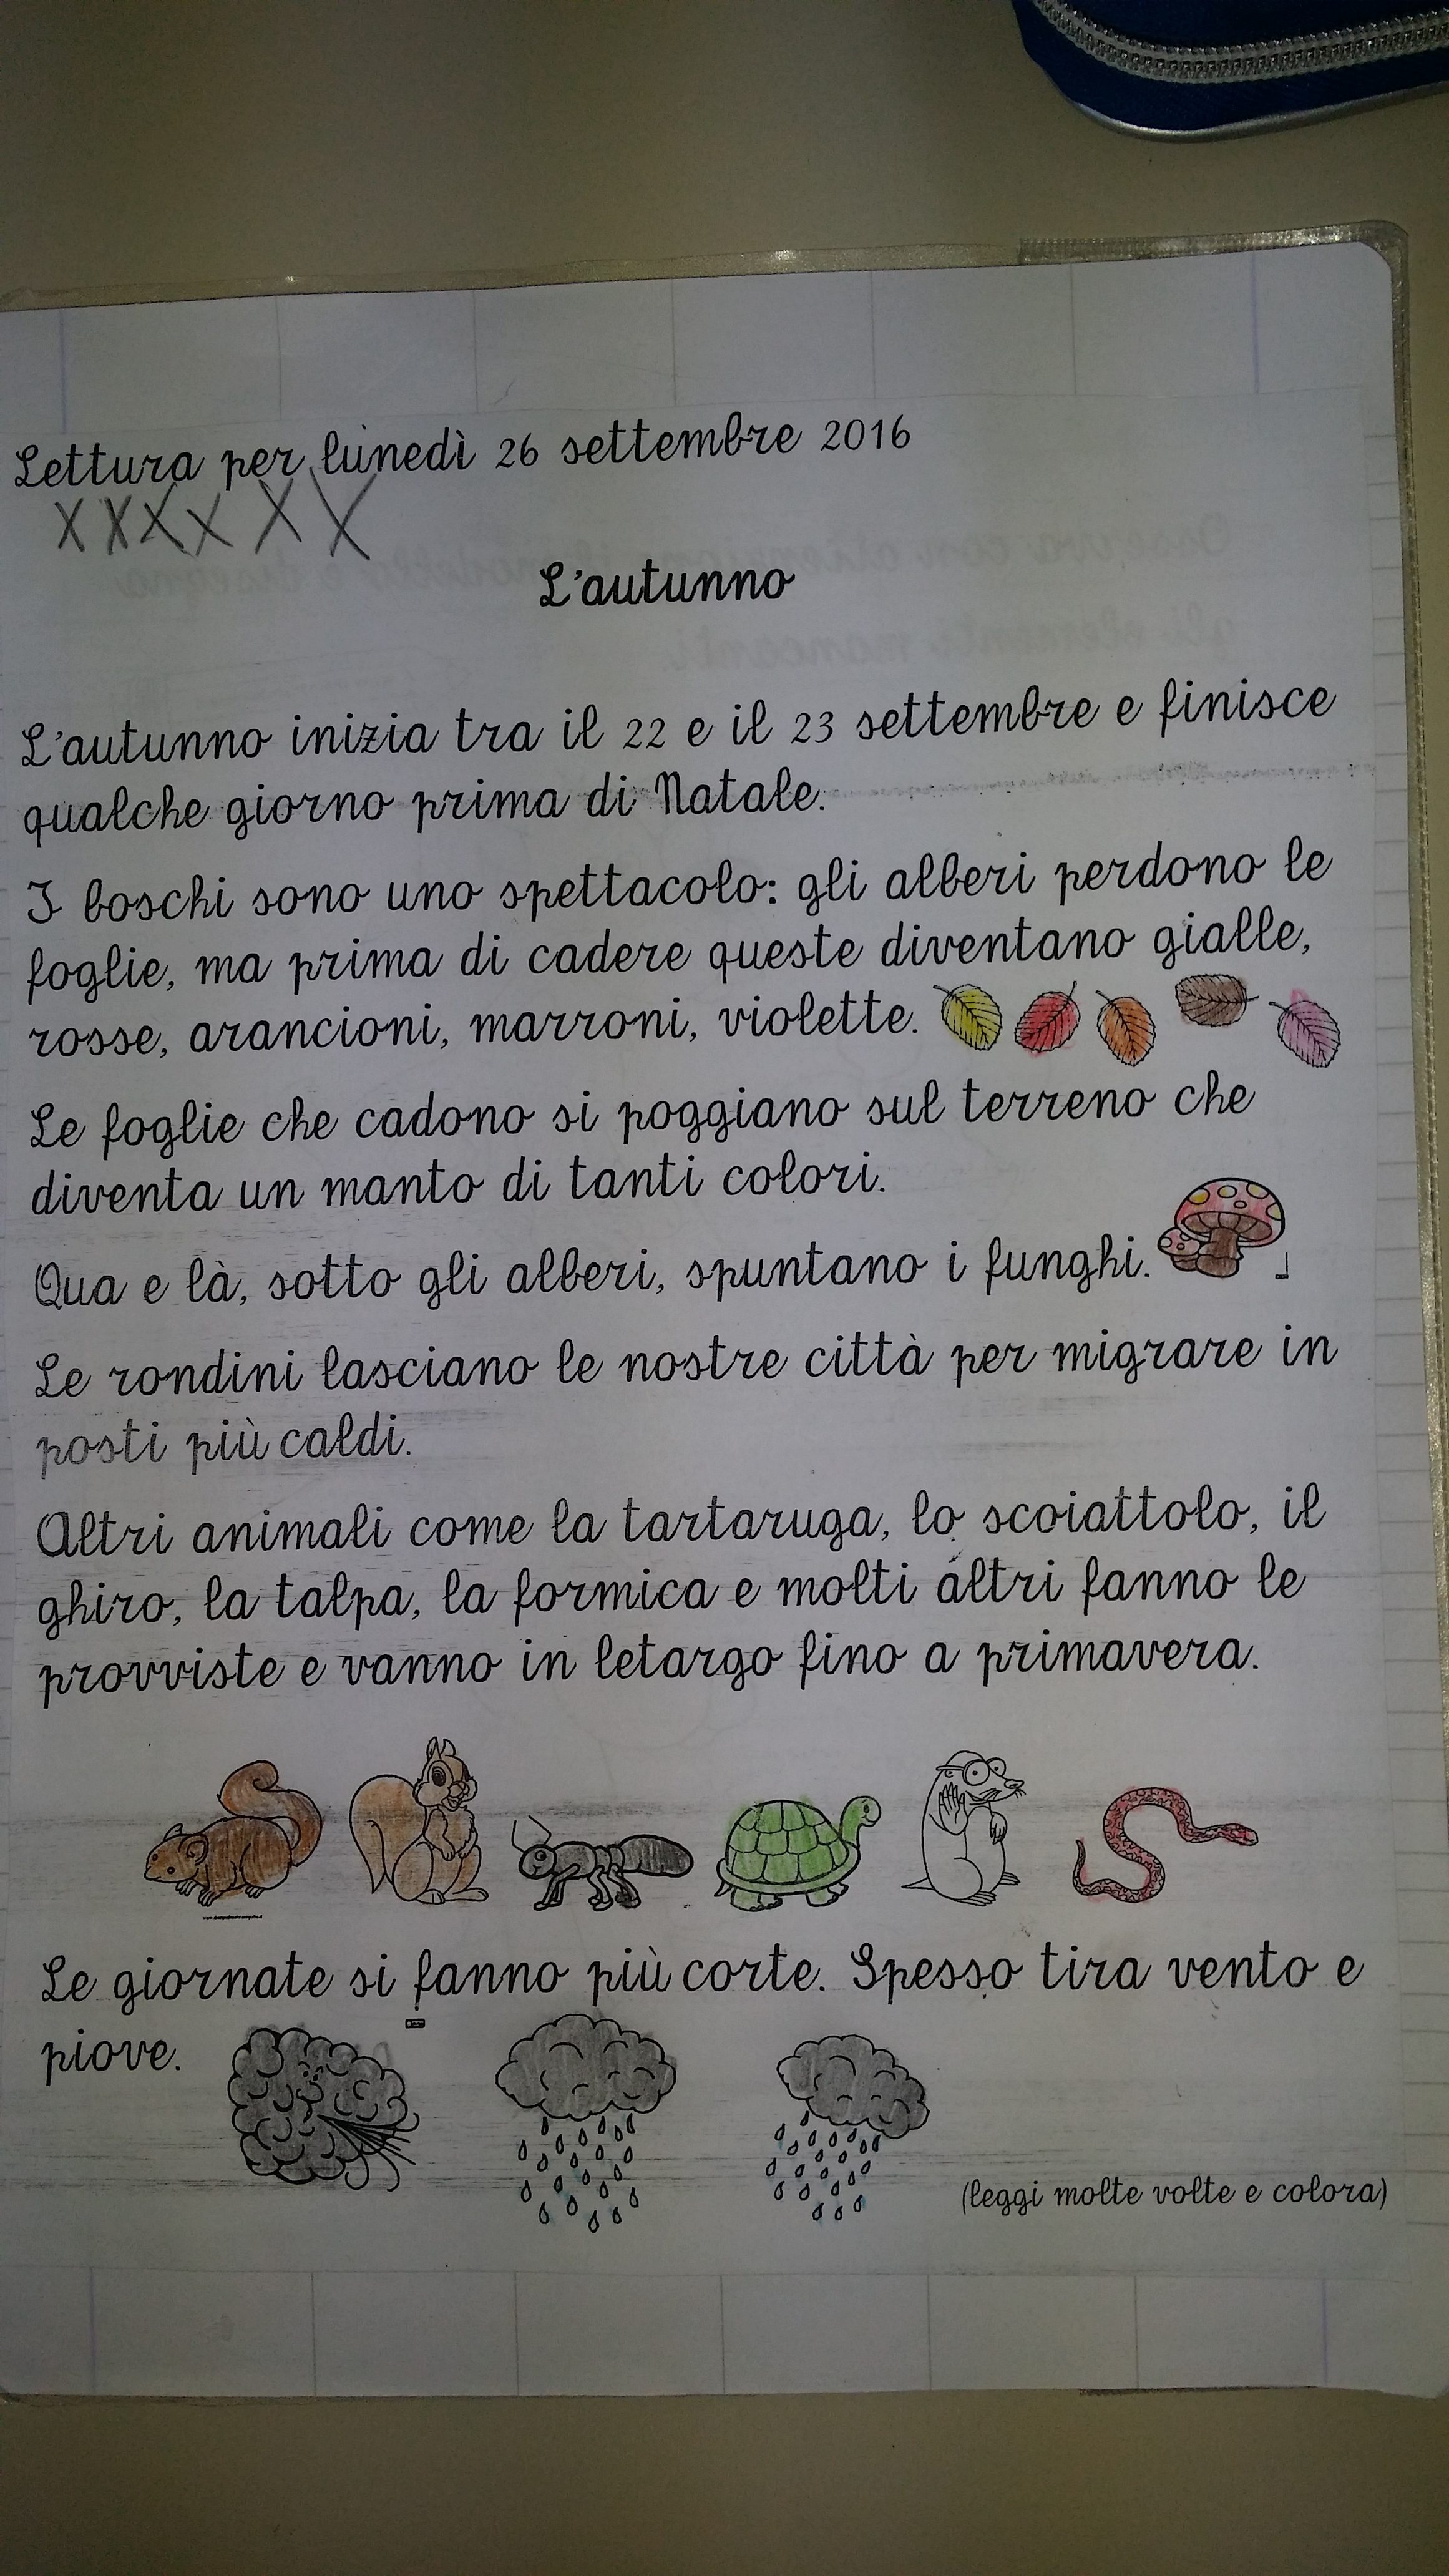 Lettura per lunedì 26 settembre 2016
X X X X X X
L'autunno
L'autunno inizia tra il 22 e il 23 settembre e finisce
qualche giorno prima di Natale.
I boschi sono uno spettacolo: gli alberi perdono le
foglie, ma prima di cadere queste diventano gialle,
rosse, arancioni, marroni, violette.
Le foglie che cadono si poggiano sul terreno che
diventa un manto di tanti colori.
Qua e là, sotto gli alberi, spuntano i funghi.
Le rondini lasciano le nostre città per migrare in
posti più caldi.
Altri animali come la tartaruga, lo scoiattolo, il
ghiro, la talpa, la formica e molti altri fanno le
provviste e vanno in letargo fino a primavera.
Le giornate si fanno più corte. Spesso tira vento e
piove.
(leggi molte volte e colora)